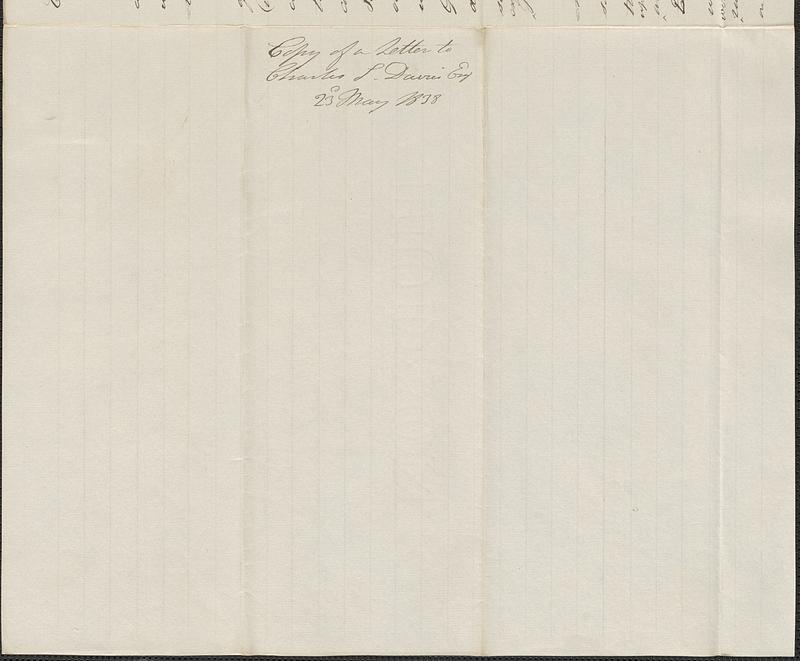 Copy of a Letter to
Charles S. Davies Esq
23 May 1838